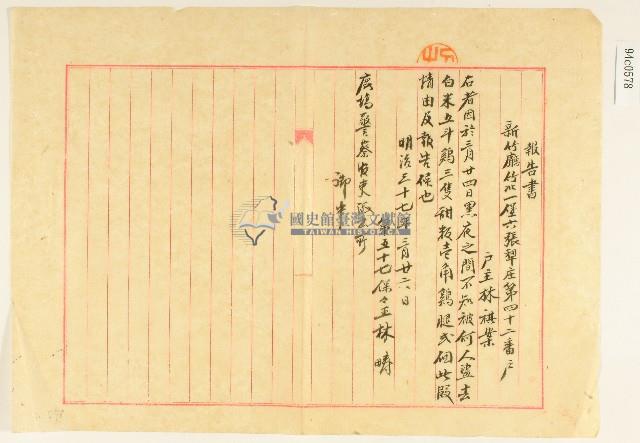 報告書
新竹廳竹北一堡六張犁庄第四十二番戶
戶主林祺業
右者因於三月廿四日黑夜之間不知被何人盜去
白米五斗鷄三隻甜粄壹角鷄腿弍個此段
情由及報告候也
明治三十七年三月廿六日
第五十七保々正林疇
警察官吏派出所
御中
國史館臺灣文獻館
TAIWAN HISTORICA
94c0578